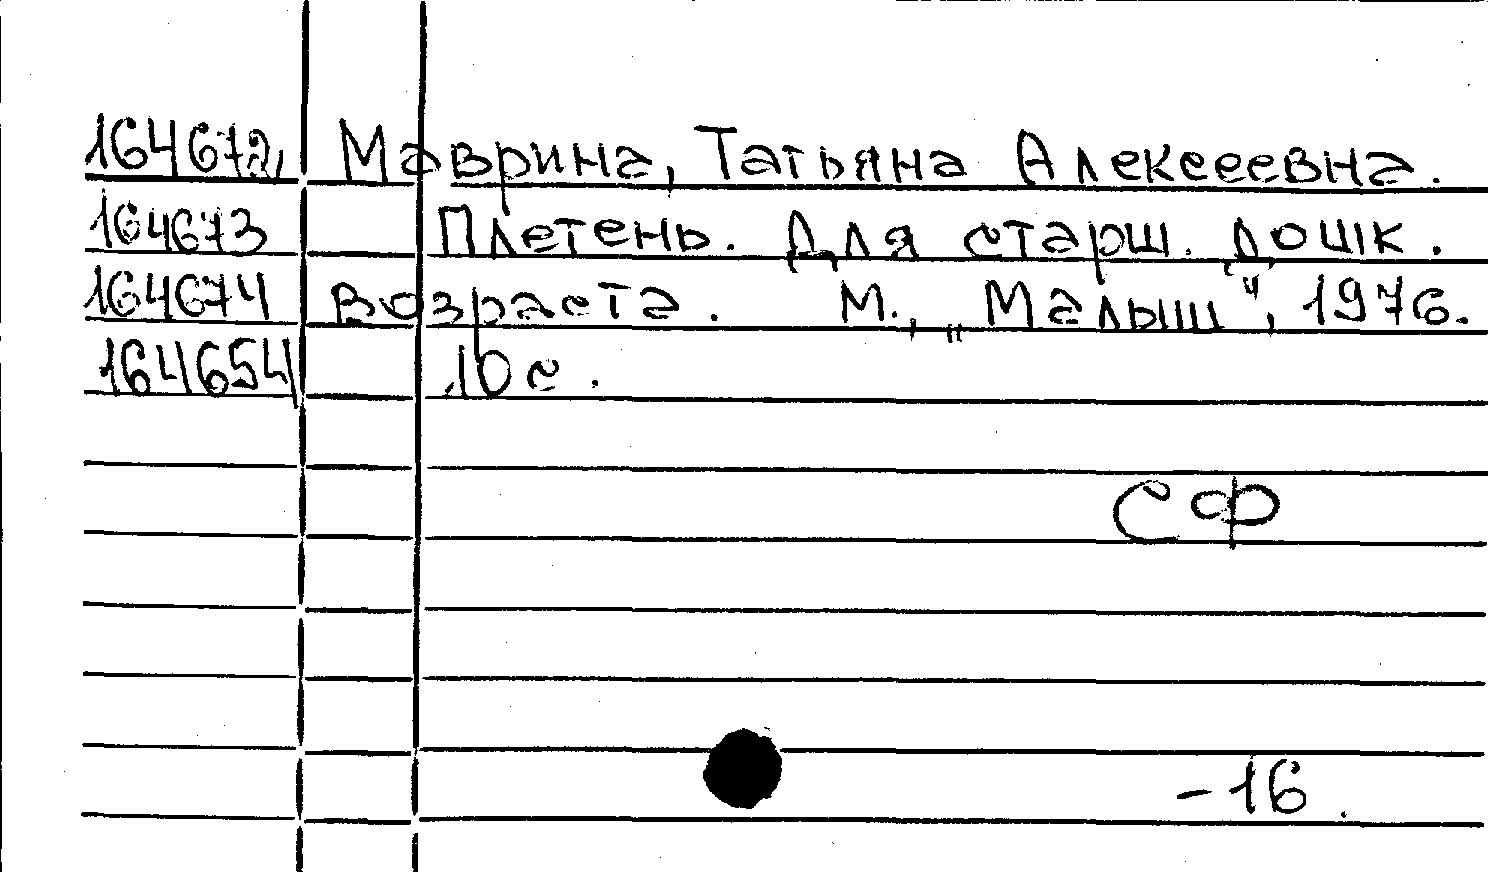 164672, Маврина, Татьяна Алексеевна.
164673 Плетень. Для старш. дошк.
164674 возраста. М., „Малыш", 1976.
164654 10 с.
СФ
-16.